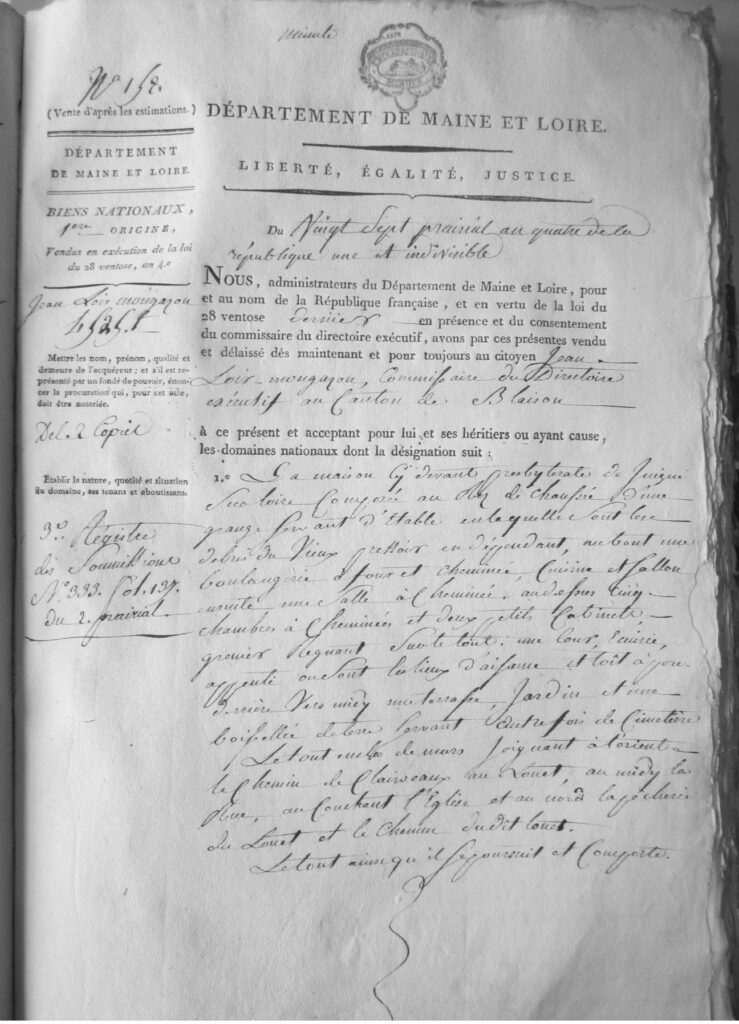 minute
N° 152.
(Vente d'après les estimations.)
DÉPARTEMENT
DE MAINE ET LOIRE.
BIENS NATIONAUX,
1ere ORIGINE,
Vendus en exécution de la loi
du 28 ventose, an 4.e
Jean Loir mongazon
Mettre les nom, prénom, qualité et
demeure de l'acquéreur; et s'il est re-
présenté par un fondé de pouvoir, énon-
cer la procuration qui, pour cet acte,
doit être notariée.
Del. 2 Copies
Établir la nature, quotité et situation
du domaine, ses tenans et aboutissans.
3.o Régistre
des Soumissions
N.o 333. fol. 137.
du 2. prairial.
DÉPARTEMENT DE MAINE ET LOIRE.
LIBERTÉ, ÉGALITÉ, JUSTICE.
Du Vingt Sept prairial an quatre de la
république une et indivisible
NOUS, administrateurs du Département de Maine et Loire, pour
et au nom de la République française, et en vertu de la loi du
28 ventose dernier en présence et du consentement
du commissaire du directoire exécutif, avons par ces présentes vendu
et délaissé dès maintenant et pour toujours au citoyen Jean
Loir-mongazon, Commissaire du Directoire
exécutif au Canton de Blaison
à ce présent et acceptant pour lui et ses héritiers ou ayant cause,
les domaines nationaux dont la désignation suit :
1.o La maison Cy devant presbyterale de Juigné
Sur loire Composée au Rez de Chaussée d'une
grange Servant d'Etable en laquelle Sont les
debris du Vieux pressoir en dépendant, au bout une
boulangerie à four et cheminée, Cuisine et Sallon
ensuite une Salle à Cheminée. au dessus Cinq
chambres à Cheminées et deux petits Cabinets,
grenier Regnant Sur le tout. une Cour, Ecurie,
appenti ou Sont les lieux d'aisame et toit à porc
derrière Vers midy une terrasse, Jardin et une
boisselée de terre Servant autrefois de Cimetière
Le tout enclos de murs Joignant à l'orient
le Chemin de Clairveaux au Louet, au midy la
Rue, au Couchant l'Eglise et au nord la pêcherie
du Louet et le Chemin dudit louet.
Le tout ainsi qu'il se poursuit et Comporte.